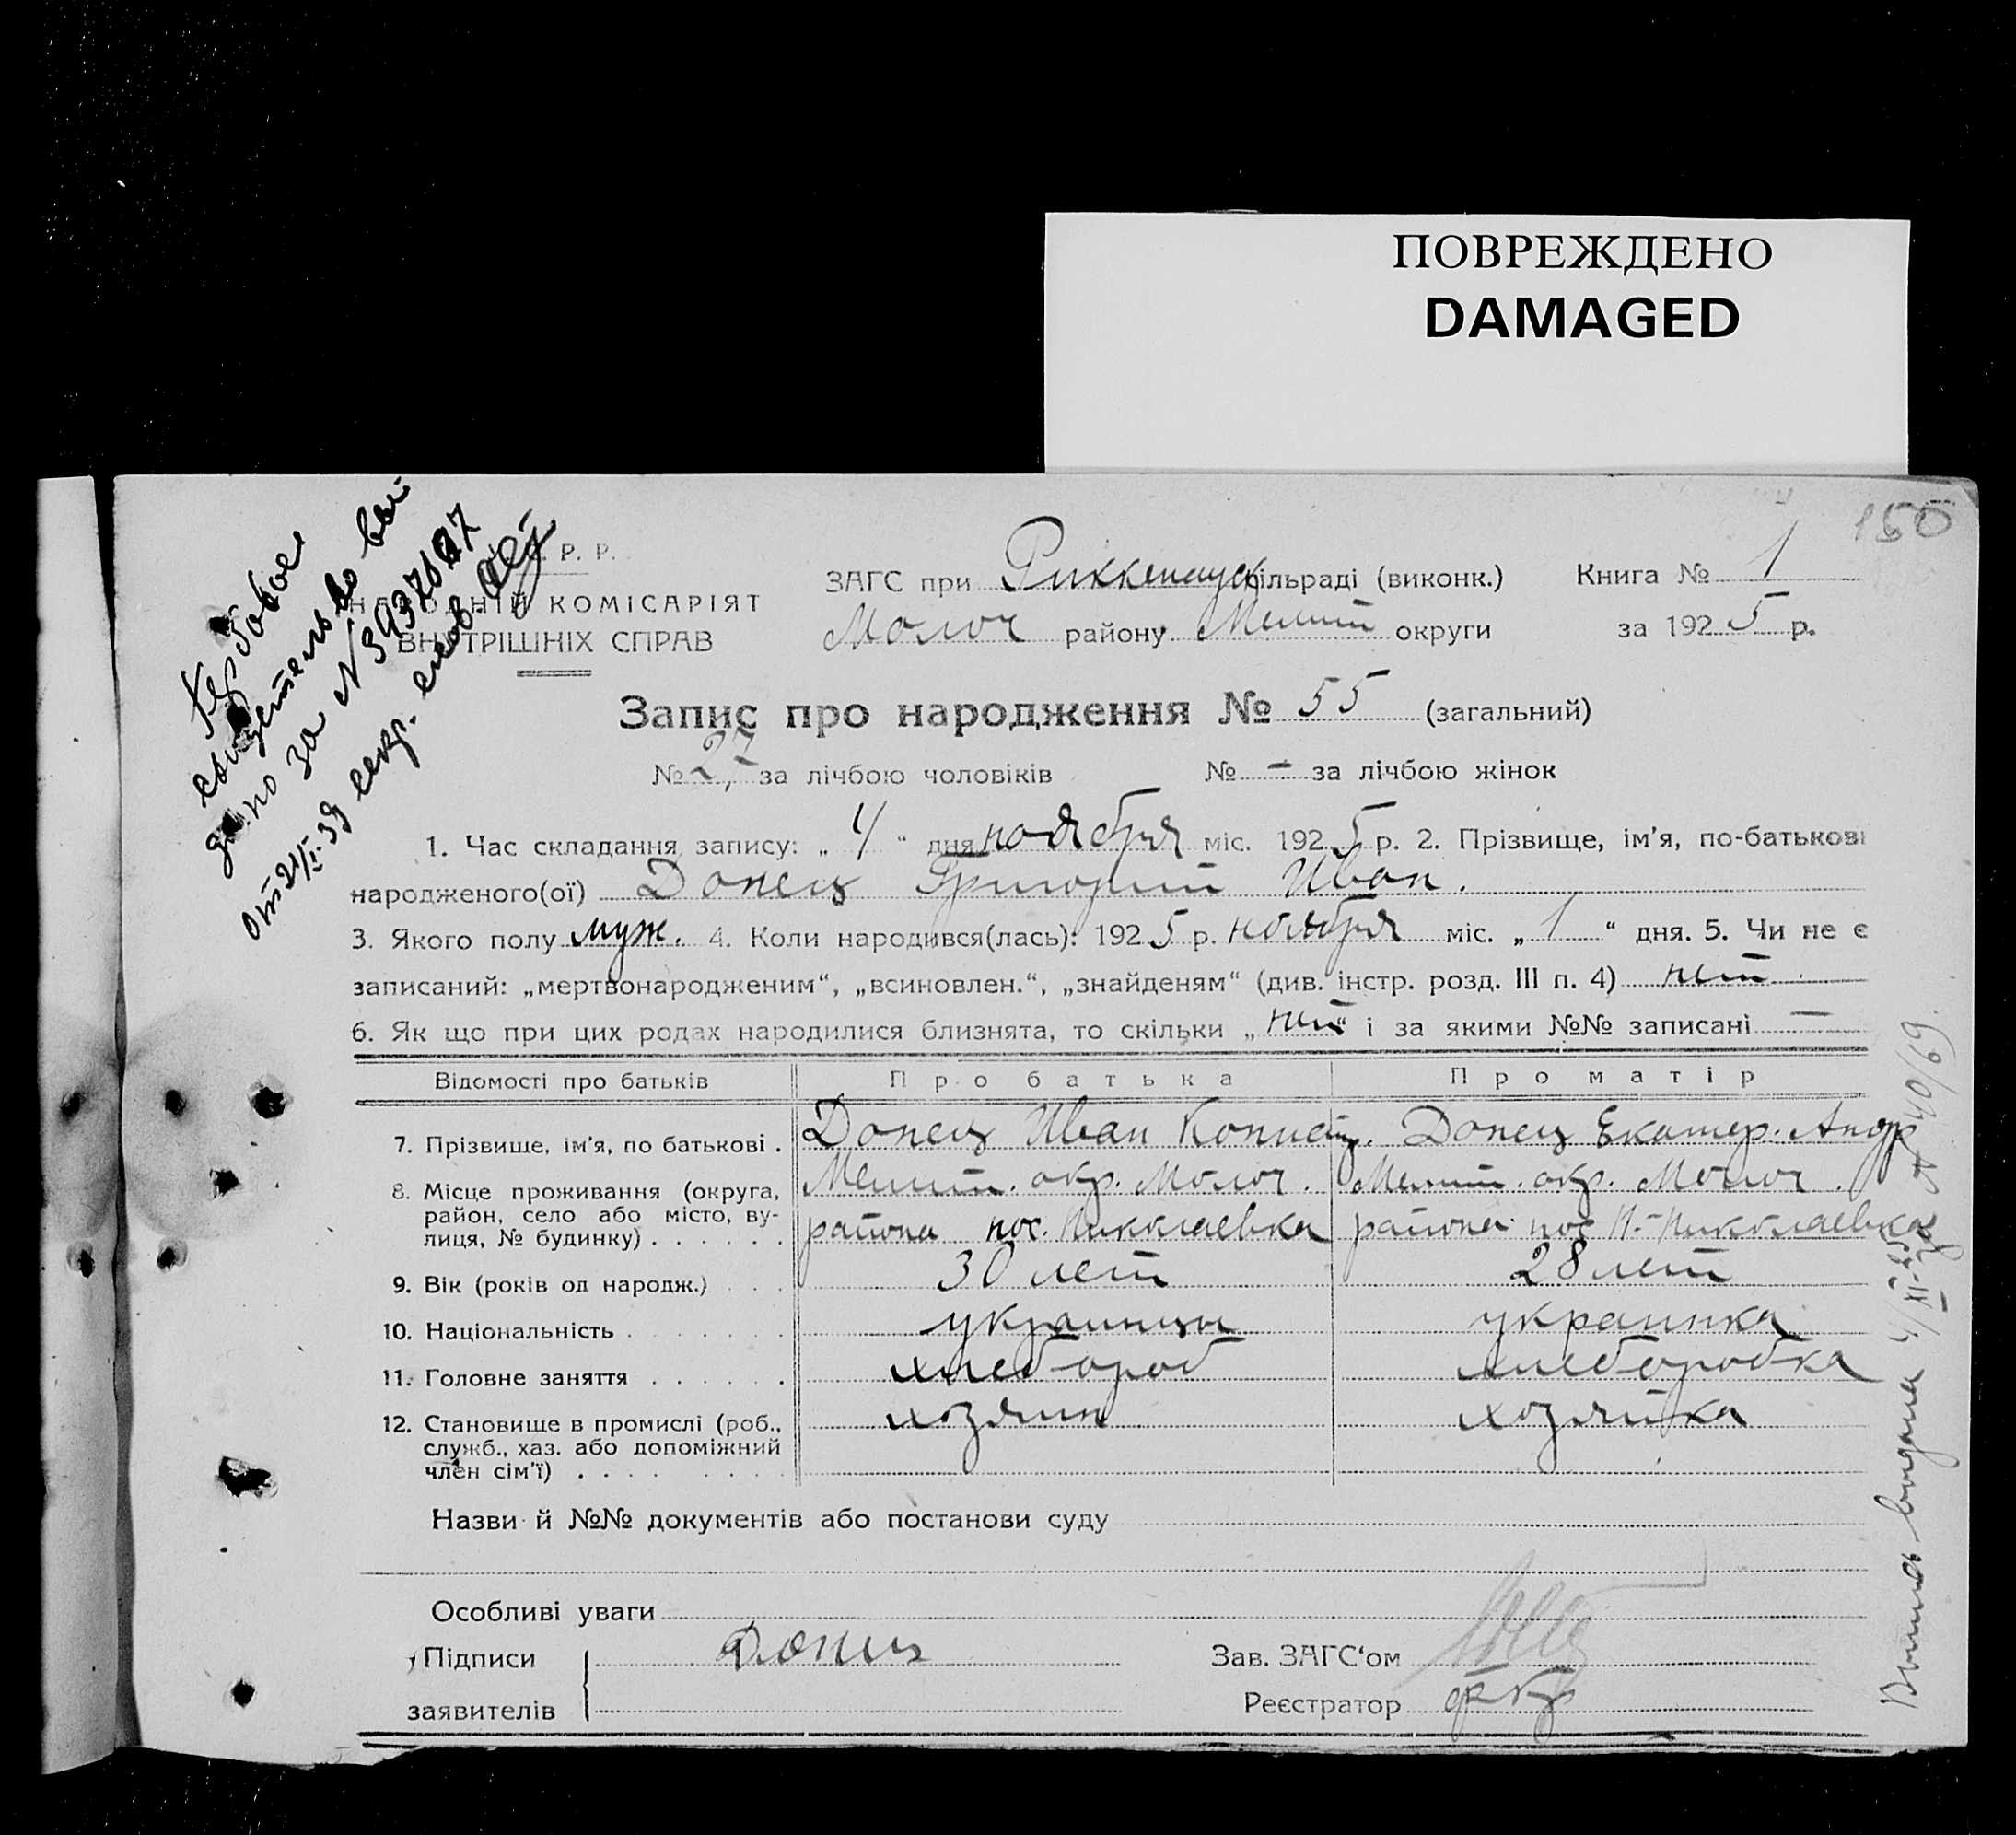 ПОВРЕЖДЕНО
DAMAGED
150
Р. Р.
НАРОДНІЙ КОМІСАРІЯТ
ВНУТРІШНІХ СПРАВ
ЗАГС при Риккенауск сільраді (виконк.) Книга № 1
Молоч району Мелит округи за 1925 р.
Запис про народження № 55 (загальний)
№ 27, за лічбою чоловіків № – за лічбою жінок
1. Час складання запису: „ 4 “ дня ноября міс. 1925 р. 2. Прізвище, ім’я, по-батькові
народженого(ої) Донец Григорий Иван.
3. Якого полу муж. 4. Коли народився(лась): 1925 р. ноября міс. „ 1 “ дня. 5. Чи не є
записаний: „мертвонародженим“, „всиновлен.“, „знайденям“ (див. інстр. розд. III п. 4) нет
6. Як що при цих родах народилися близнята, то скільки „ нет “ і за якими №№ записані —
Відомості про батьків Про батька Про матір
7. Прізвище, ім’я, по батькові . Донец Иван Донец Екатер. Андр
8. Місце проживання (округа, район, село або місто, вулиця, № будинку) . . . . . . Мелит. окр. Молоч. Мелит. окр. Молоч.
района пос. Николаевка района пос Н.-Николаевка
9. Вік (років од народж.) . . . 30 лет 28 лет
10. Національність . . . . . . . украинец украинка
11. Головне заняття . . . . . . хлебороб хлеборобка
12. Становище в промислі (роб., служб., хаз. або допоміжний член сім’ї) . . . . . . . . . хозяин хозяйка
Назви й №№ документів або постанови суду
Особливі уваги
Підписи Донец Зав. ЗАГС‘ом
заявителів Реєстратор
Гербовое
свидетельство вы-
дано за N
от 21/I-39 секр.
Выпись выдана 4/XI-25 за N 40/69.